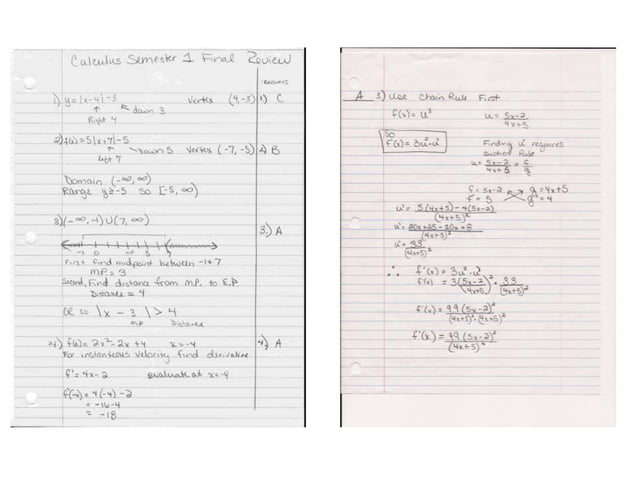 Calculus Semester 1 Final Review
Answers
1) y = |x-4| -3 Vertex (4,-3) 1) C
Right 4 down 3
2) f(x) = 5|x+7| -5 Vertex (-7, -5) 2) B
left 7 down 5
Domain (-∞, ∞)
Range y ≥ -5 so [-5, ∞)
3) (-∞, -1) U (7, ∞) 3.) A
-1 0 MP 5 7
First find midpoint between -1 & 7
M.P. = 3
Second, Find distance from M.P. to E.P
Distance = 4
OR so |x - 3| > 4
MP Distance
4) f(x) = 2x² - 2x + 4 x = -4 4) A
For instantaneous velocity find derivative
f' = 4x - 2 evaluate at x = -4
f'(-4) = 4(-4) - 2
= -16 -
= -18
A 5) Use Chain Rule First
f(x) = u³ u = 5x-2 / 4x+5
So
f'(x) = 3u² · u'
Finding u' requires
Quotient Rule
u = 5x-2 / 4x+5 = f / g
f = 5x-2 g = 4x+5
f' = 5 g' = 4
u' = 5(4x+5) - 4(5x-2) / (4x+5)²
u' = 20x+25 - 20x+8 / (4x+5)²
u' = 33 / (4x+5)²
∴ f'(x) = 3u² · u'
f'(x) = 3(5x-2 / 4x+5)² · 33 / (4x+5)²
f'(x) = 99(5x-2)² / (4x+5)² · (4x+5)²
f'(x) = 99(5x-2)² / (4x+5)⁴